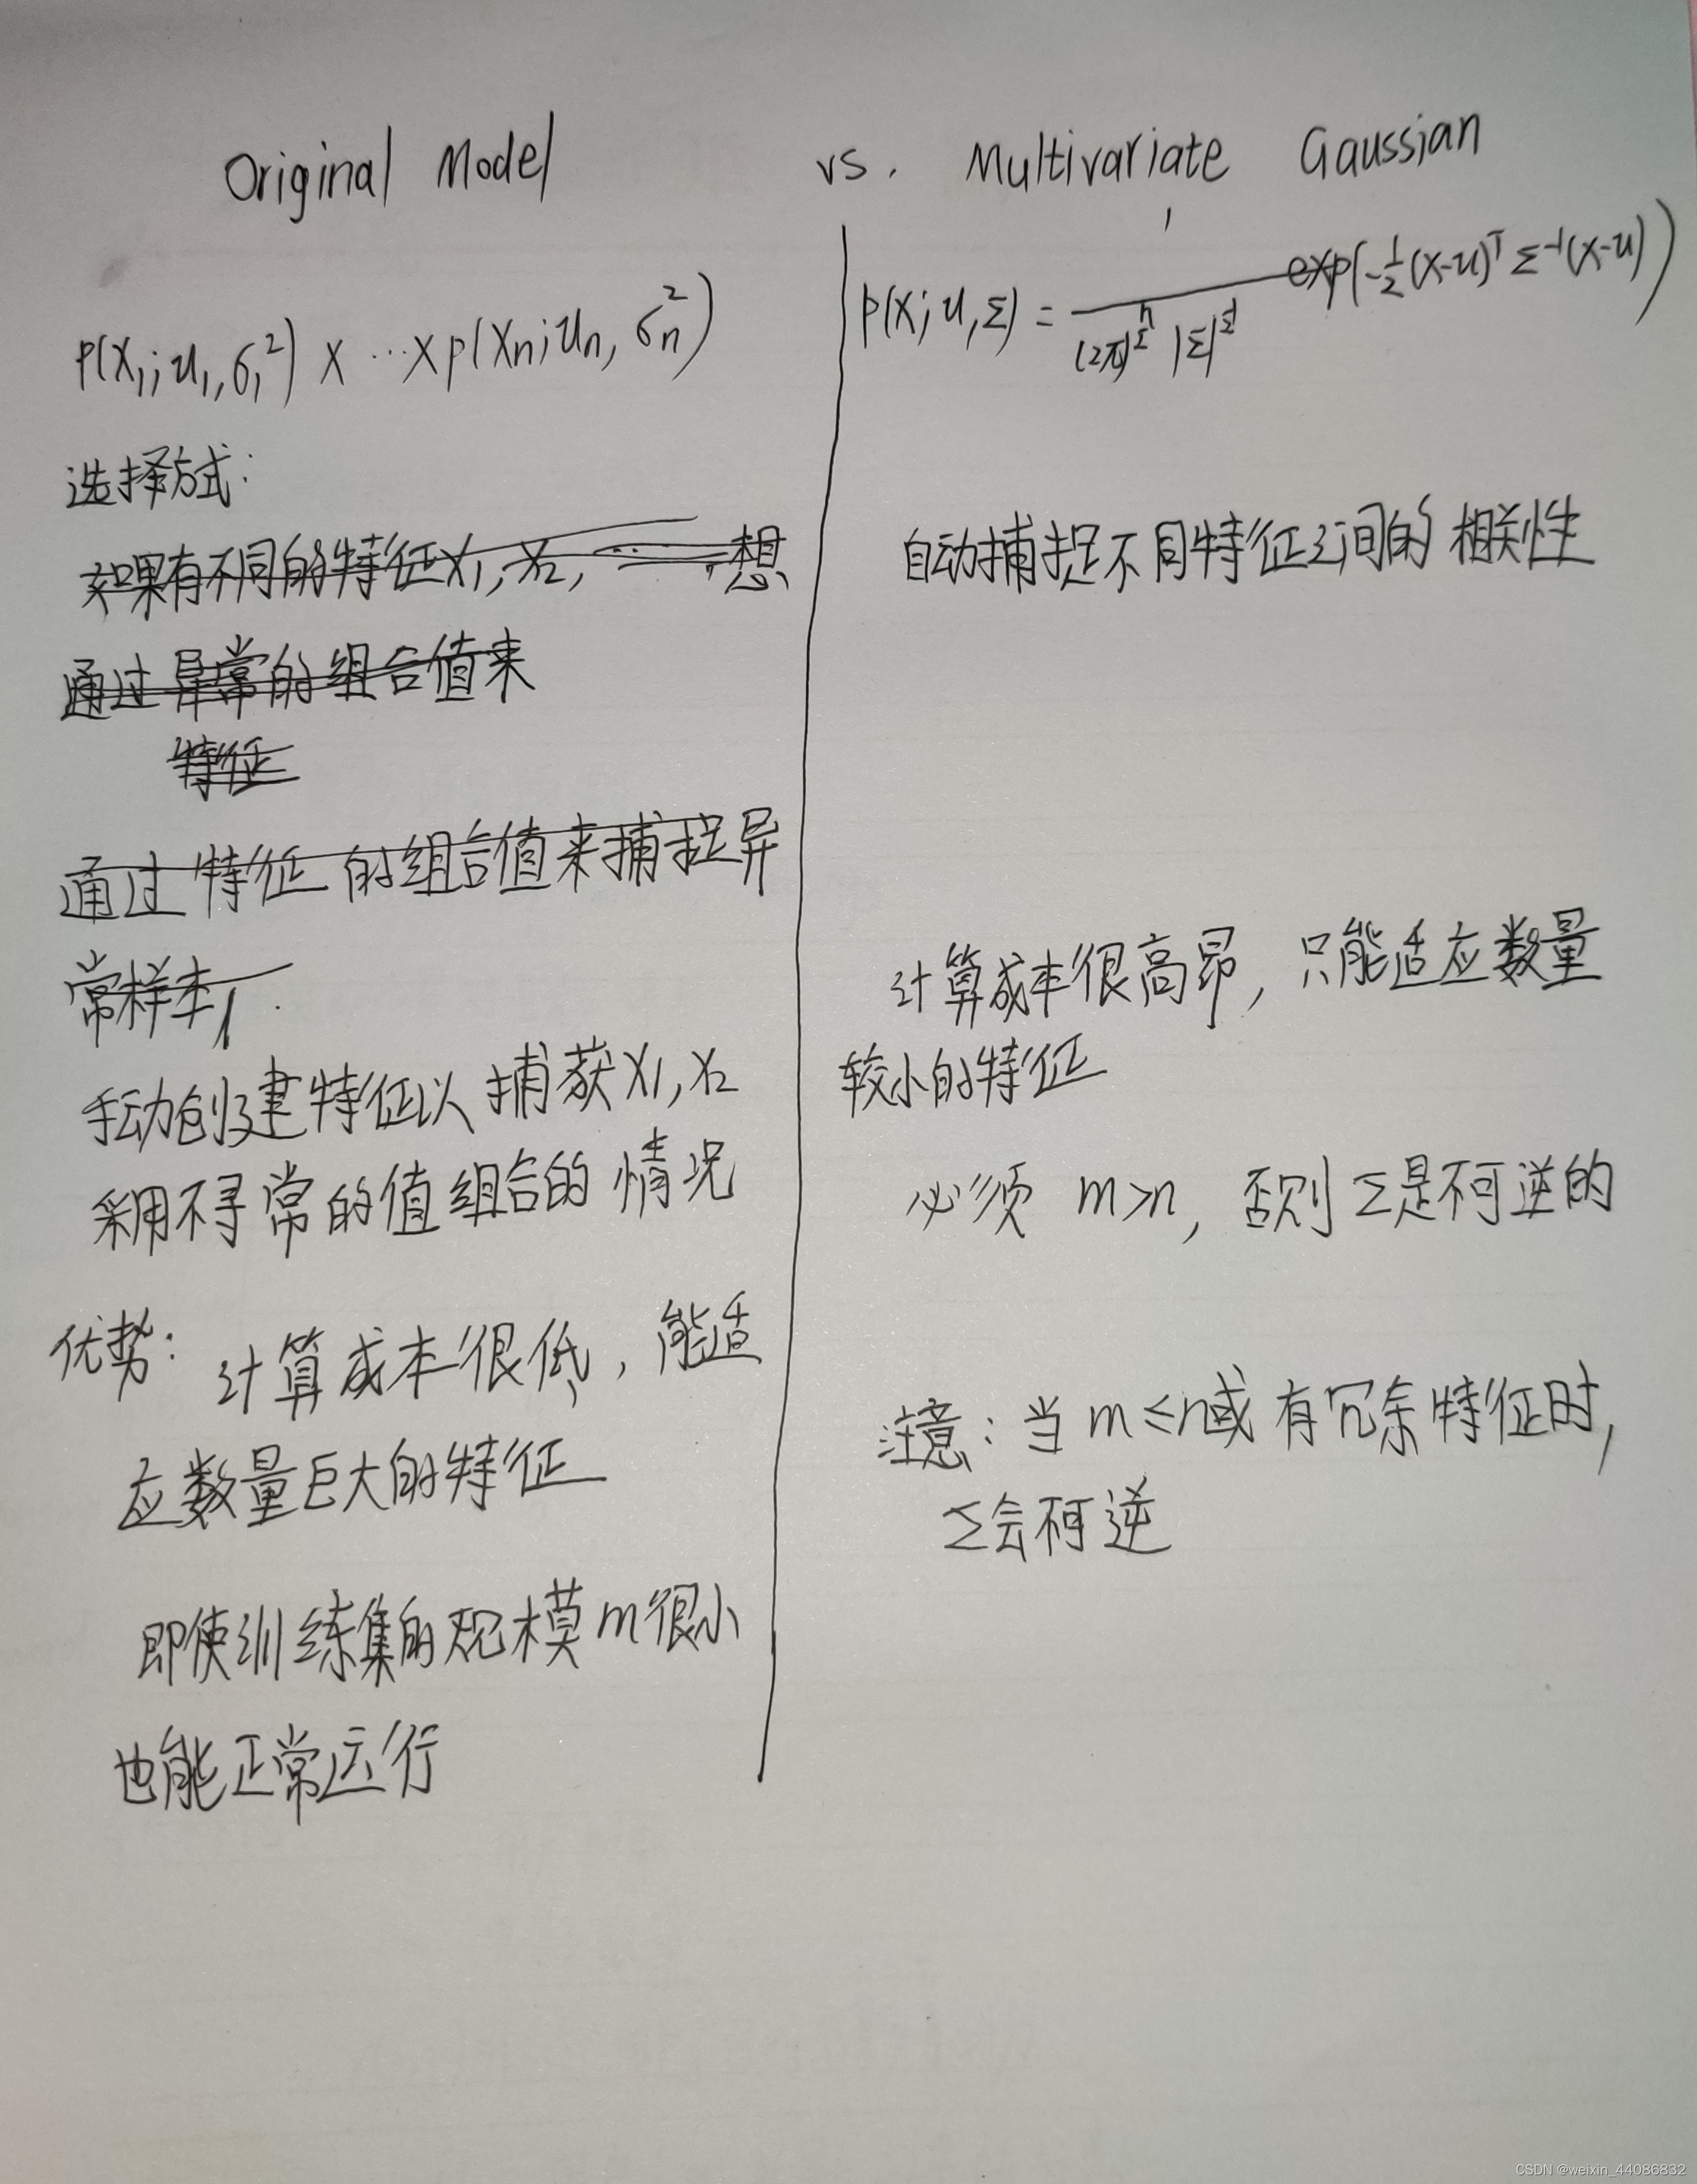 Original Model vs. Multivariate Gaussian
p(x₁; u₁, σ₁²) × ⋯ × p(xn; un, σn²)
选择方式:
如果有不同的特征x₁, x₂, ......想
通过异常的组合值来
特征
通过特征的组合值来捕捉异
常样本,
手动创建特征以捕获x₁, x₂
采用不寻常的值组合的情况
优势: 计算成本很低, 能适
应数量巨大的特征
即使训练集的规模m很小
也能正常运行
p(x; u, Σ) = 1 / ((2π)^(n/2) |Σ|^(1/2)) exp(-½(x-u)ᵀ Σ⁻¹(x-u))
自动捕捉不同特征之间的相关性
计算成本很高昂, 只能适应数量
较小的特征
必须 m>n, 否则Σ是不可逆的
注意: 当m≤n或有冗余特征时,
Σ会不可逆
CSDN @weixin_44086832